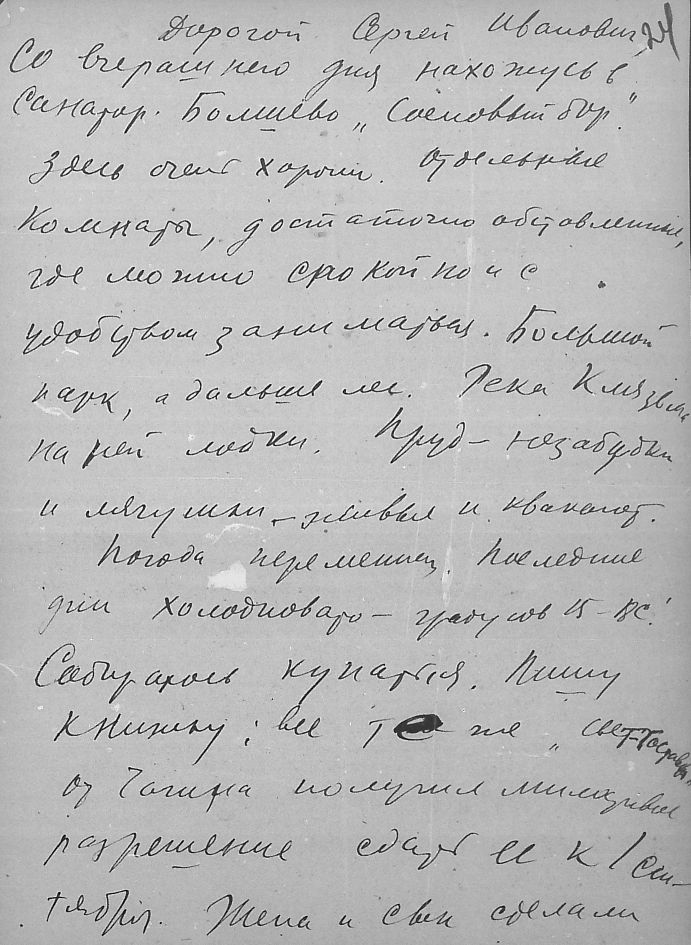 Дорогой Сергей Иванович, 24
Со вчерашнего дня нахожусь в
Санатор. Болшево „Сосновый бор".
Здесь очень хорошо. Отдельные
комнаты, достаточно обставленные,
где можно спокойно и с
удобством заниматься. Большой
парк, а дальше лес. Река Клязьма
на ней лодки. Пруд – незабудки
и лягушки – живые и квакают.
Погода переменная. Последние
дни холодновато – градусов 15–18С.
Собираюсь купаться. Пишу
книжку; все то же
от Чагина получил милостивое
разрешение сдать ее к 1 сен-
тября. Жена и сын сделали